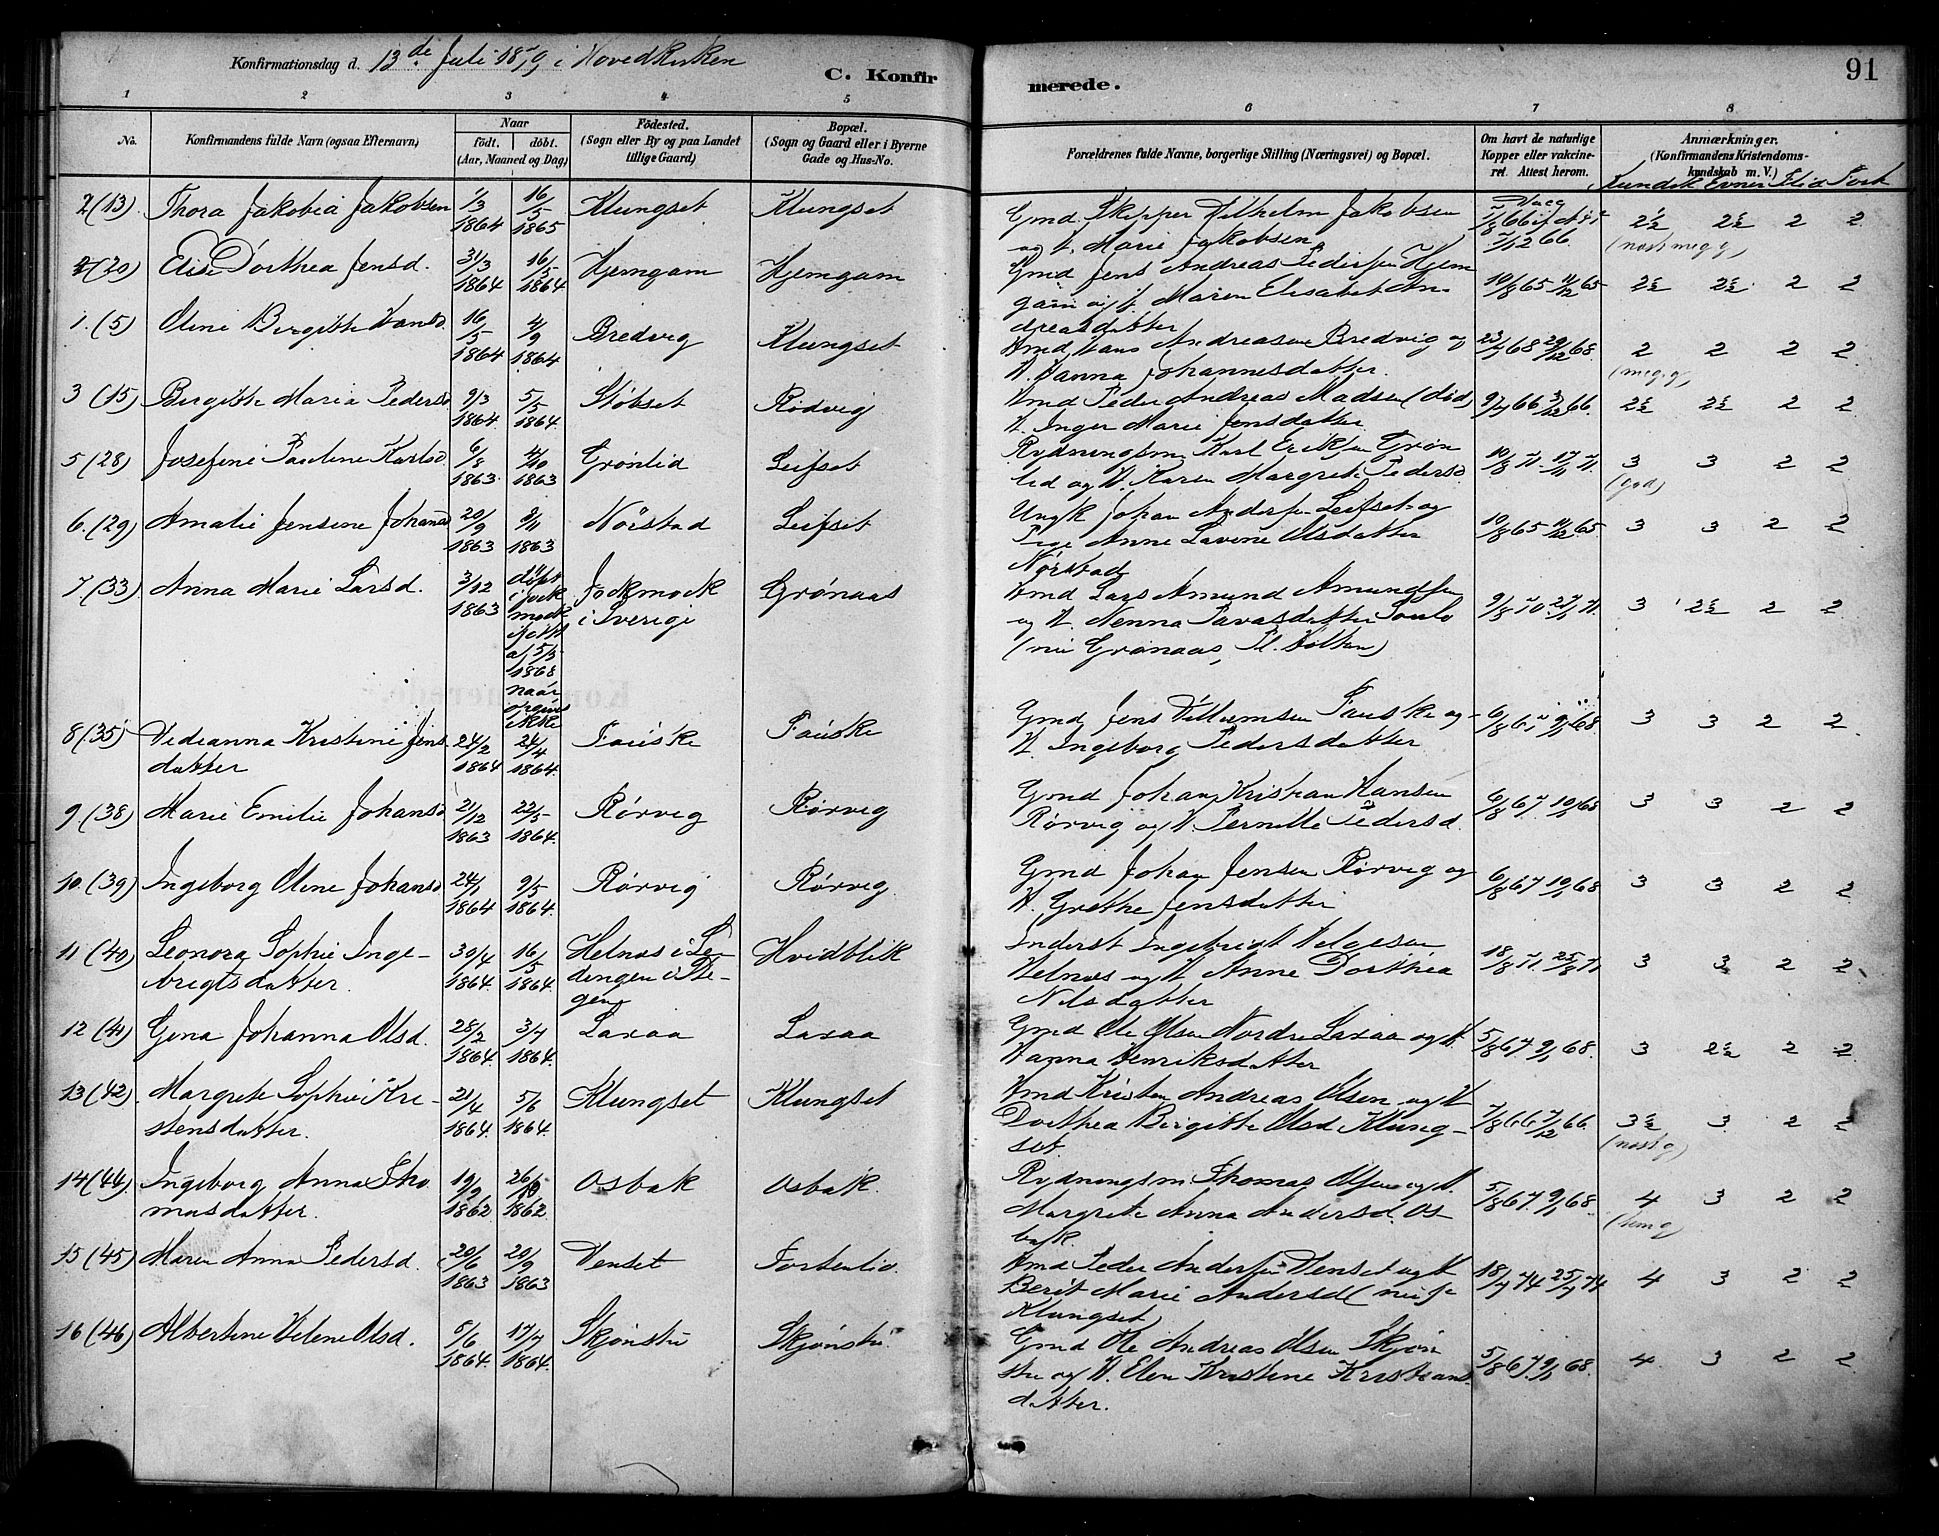 Konfirmationsdag d. 13de Juli 1879 i Hovedkirken
C. Konfir
merede.
91
1 2 3 4 5 6 7 8
No.
Konfirmandens fulde Navn (ogsaa Efternavn)
Naar
født. døbt.
(Aar, Maaned og Dag)
Födested.
(Sogn eller By og paa Landet
tillige Gaard)
Bopæl.
(Sogn og Gaard eller i Byerne
Gade og Hus-No.
Forældrenes fulde Navne, borgerlige Stilling (Næringsvei) og Bopæl.
Om havt de naturlige
Kopper eller vakcine-
ret. Attest herom.
Anmærkninger.
(Konfirmandens Kristendoms-
kundskab m. V.)
Kundsk Evner Flid Forh
2 (13) Thora Jakobia Jakobsen 1/3 1864 16/5 1865 Klungset Klungset
Gmd Skipper Vilhelm Jakobsen
og H. Marie Jakobsen
7/8 66 7/12 66. 2½ 2½ 2 2
(næst meg. g)
4 (20) Elise Dorthea Jensd. 31/3 1864 16/5 1864. Hjemgam Hjemgam
Gmd Jens Andreas Pedersen Hjem
gam og H. Maren Elisabet An-
dreasdatter
10/8 65 11/12 65 2½ 2½ 2 2
1. (5) Oline Birgitte Hansd. 16/5 1864 4/9 1864 Bredvig Klungset
Hmd Hans Andreasen Bredvig og
H. Hanna Johannesdatter.
23/7 68 29/12 68. 2 2 2 2
(meg. g)
3 (15) Birgitte Maria Pedersd 9/3 1864. 5/5 1864. Støbset Rødvig
Hmd Peder Andreas Madsen (død)
H. Inger Marie Jensdatter
9/7 66 3/12 66. 2½ 2½ 2 2
5 (28) Josefine Pauline Karlsd. 6/8 1863. 4/10 1863 Grønlid Leifset
Rydningsm Karl Eriksen Grøn
lid og H. Karen Margrete Pedersd
10/8 71. 17/11 71. 3 3 2 2
(god)
6. (29) Amalie Jensine Johansd 20/9 1863 8/11 1863 Nørstad Leifset
Ungk Johan Andersen Leifset og
Pige Anne Lavine Olsdatter
Nørstad
10/8 65 11/12 65. 3 3 2 2
7 (33) Anna Marie Larsd. 3/12 1863
døpt
i Jock
mock
af 5/3
1868
naar
opgives
ikke
Jockmock
i Sverige
Grønaas
Hmd Lars Amund Amundsen
og H. Nenna Pavalsdatter
(nu Grønaas,
9/8 70. 3 2½ 2 2
8 (35) Vedianna Kristine Jens
datter 24/2 1864 24/4 1864. Fauske Fauske
Gmd Jens Villumsen Fauske og
H. Ingeborg Pedersdatter
6/8 67 9/1 68 3 3 2 2.
9 (38) Marie Emilie Johansd 21/12 1863 22/5 1864. Rørvig Rørvig
Gmd Johan Kristian Hansen
Rørvig og H. Pernille Pedersd.
6/8 67. 10/1 68 3 3 2 2
10. (39) Ingeborg Oline Johansd 24/1 1864 9/5 1864. Rørvig Rørvig
Gmd Johan Jensen Rørvig og
H. Grethe Jensdatter
6/8 67 10/1 68 3 3 2 2
11 (40) Leonora Sophie Inge-
brigtsdatter. 30/4 1864. 16/5 1864.
Helnes i Lø-
dingen i Ste-
gen
Hvidblik
Inderst Ingebrigt Helgesen
Helnes og H. Anne Dorthea
Nilsdatter
18/8 71. 25/8 71 3 3 2 2
12 (41) Gina Johanna Olsd. 28/2 1864. 3/7 1864. Laxaa Laxaa
Gmd Ole Olsen Nordre Laxaa og H.
Hanna Henriksdatter
5/8 67 9/1 68. 3 2½ 2 2
13 (42) Margrete Sophie Kri-
stensdatter. 21/4 1864. 5/6 1864. Klungset Klungset
Hmd Kristen Andreas Olsen og H
Dorthea Birgitte Olsd Klung-
set.
7/8 66 7/12 66. 3½ 3 2 2
(næst g)
14 (44). Ingeborg Anna Tho
masdatter. 19/9 1862 26/10 1862. Osbak Osbak.
Rydningsm. Thomas Olsen og H.
Margrete Anna Andersd. Os
bak.
5/8 67. 9/1 68. 4 3 2 2
(tem g)
15 (45) Maren Anna Pedersd. 20/6 1863 20/9 1863 Venset Forbenlid.
Hmd Peder Andersen Venset og H
Berit Marie Andersd (nu
Klungset)
18/7 74 25/7 74 4 3 2 2
16 (46) Albertine Helene Olsd. 5/6 1864. 17/7 1864. Skjønstu Skjønstu
Gmd Ole Andreas Olsen Skjøn
stu og H. Elen Kristine Kristians
datter.
5/8 67. 9/1 68. 4 3 2 2